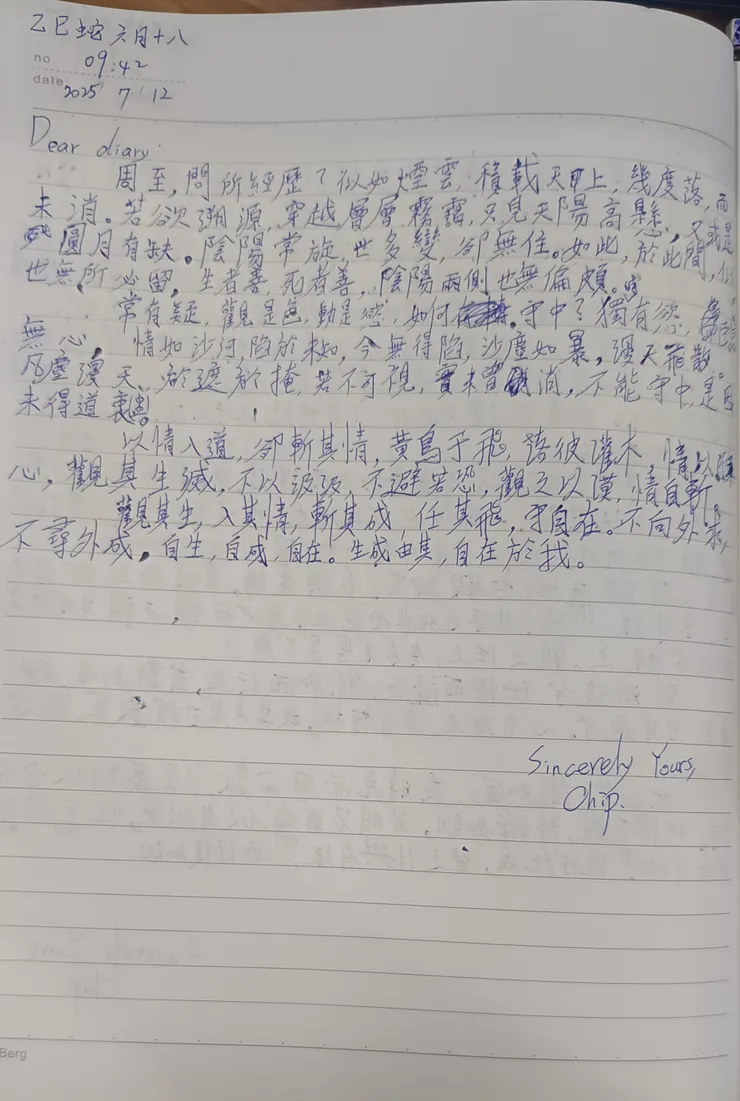 乙巳蛇 六月十八
no. 09:42
date 2025 7 12
Dear diary:
周至,問所經歷了似如煙雲,積載天甲上,幾度落,而
未消。若欲溯源,穿越層層霧靄,只見天陽高懸,又或是
圓月有缺。陰陽常旋,世多變,卻無住。如此,於此間,似
也無所必留,生者善,死者善,陰陽兩側也無偏頗。
常有疑,觀是色,動是慾,如何守中?獨有慾,
無心,情如沙河,陷於未知,今無得陷,沙塵如暴,漫天飛散。
凡塵漫天、於遮於掩,若不可視,實未曾消,不能守中,是因
未得道裏。
以情入道,卻斬其情,黃鳥于飛,落彼灌木,情以
心,觀其生滅,不以汲汲,不避若恐,觀之以漠,情自斬。
觀其生,入其情,斬其成,任其飛,守自在。不向外求,
不尋外成,自生,自成,自在。生成由其,自在於我。
Sincerely Yours,
Chip.
Berg